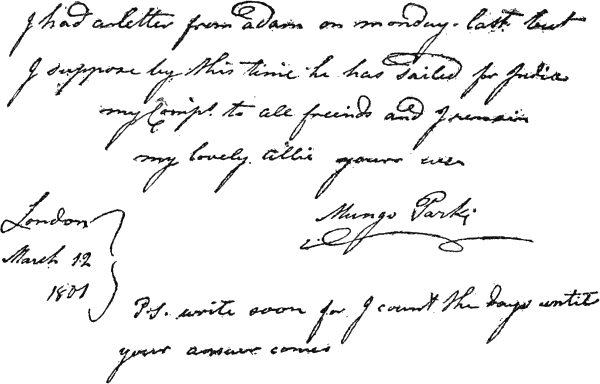 I had a letter from adam on monday last but
I suppose by this time he has sailed for India
my Compts. to all freinds and I remain
my lovely allie yours ever
Mungo Park
London
March 12
1801
P.S. write soon for I count the days until
your answer comes